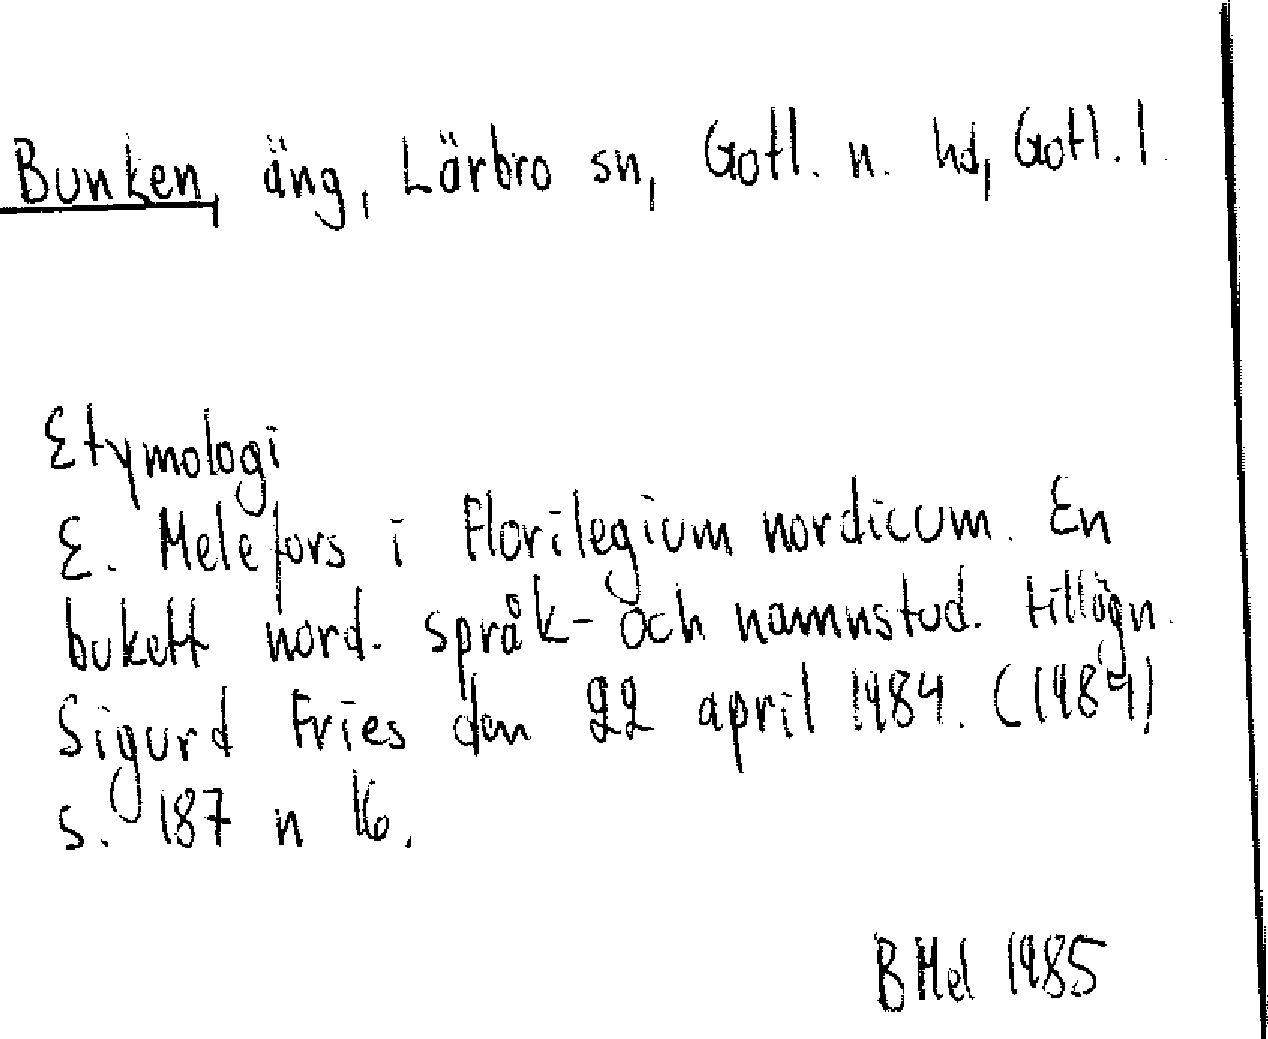 Bunken, äng, Lärbro sn, Gotl. n. hd, Gotl. l.
Etymologi
E. Melefors i Florilegium nordicum. En
bukett nord. språk- och namnstud. tillägn.
Sigurd Fries den 22 april 1984. (1984)
s. 187 n 16.
BMel 1985